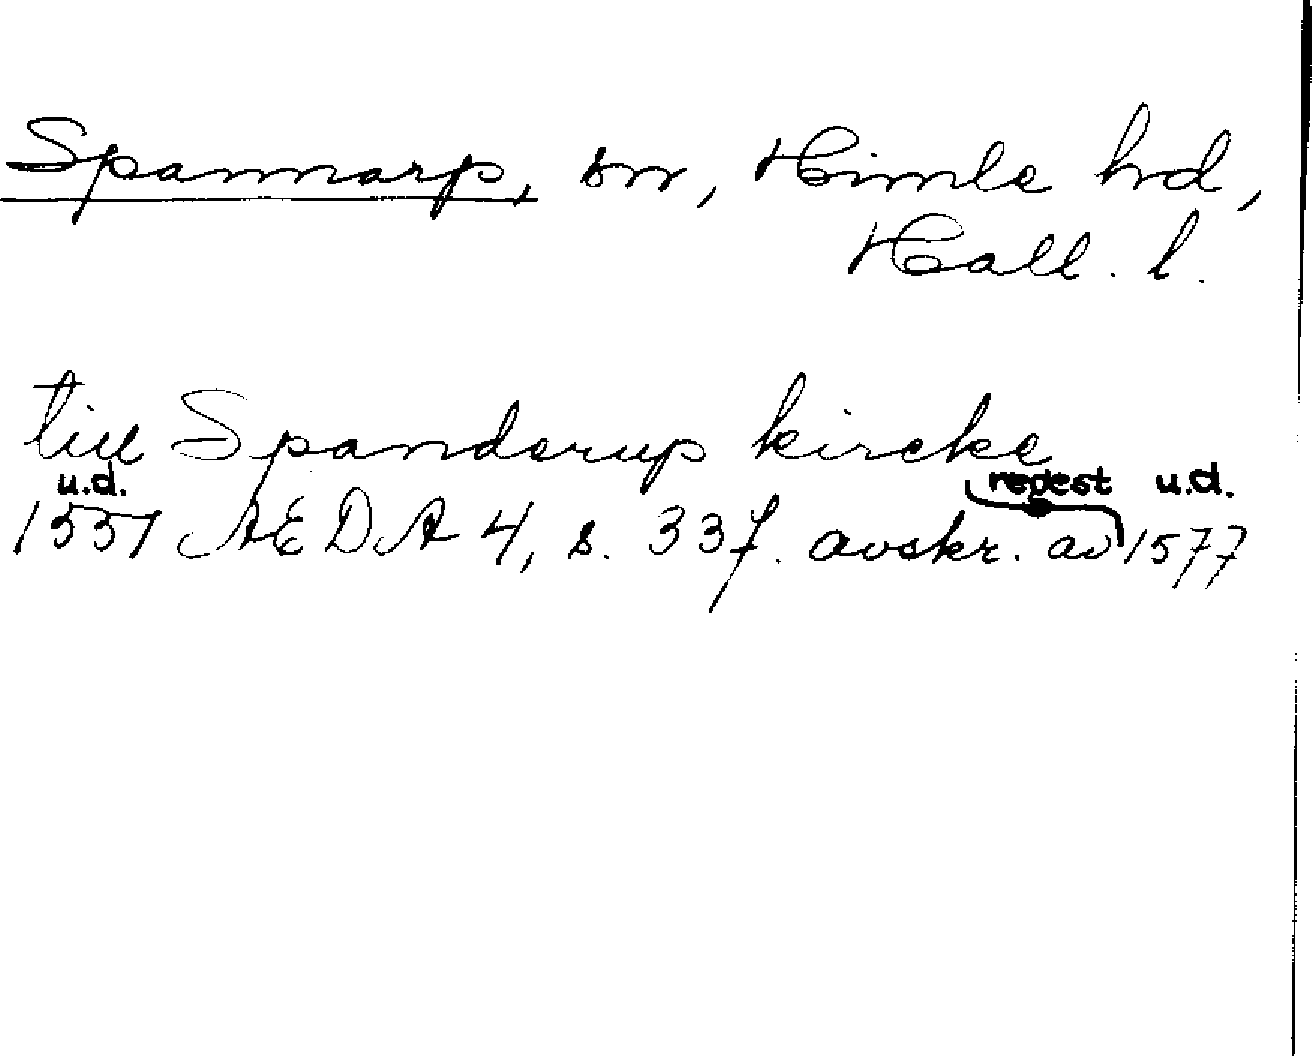 Spannarp, sn, Himle hrd,
Hall. l.
till Spanderup kircke
u.d. regest u.d.
1551 ÆDA 4, s. 33f. avskr. av 1577